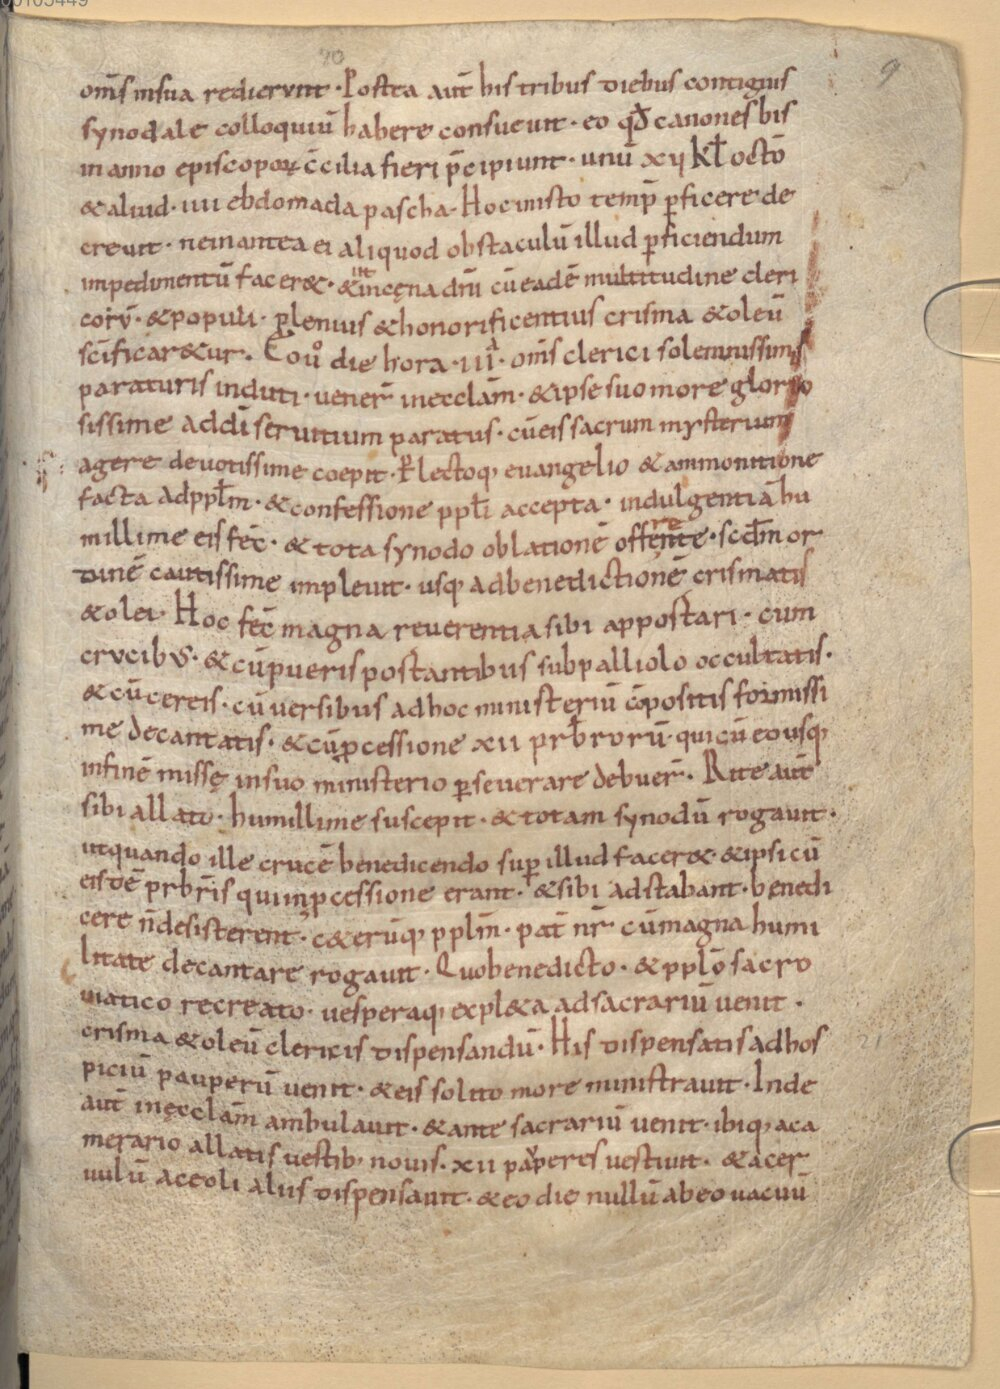 00105449
70
9
om̄s insua redierunt · Postea aut̄ bis tribus diebus contiguis
synodale colloquiū habere consueuit · eo qđ canones bis
in anno episcopoꝝ c̄cilia fieri p̄cipiunt · unū xıı kł octō
& aliud · ıııı ebdomada pascha · Hoc in isto temp̄ ꝑficere de
creuit · ne in antea ei aliquod obstaculū illud ꝑficiendum
impedimentū facer& · & ut in cęna dn̄i cū eadē multitudine cleri
corū · & populi · plenius & honorificentius crisma & oleū
sc̄ificar&ur. Eoů die hora · ııı ͣ · om̄s clerici solemnissimis
paraturis induti · uener̄ in ecclām · & ipse suo more glorio
sissime ad dī seruitium paratus · cū eis sacrum mysterium
agere deuotissime coepit · P̄lectoq; euangelio & ammonitione
facta ad pplm̄ · & confessione ppłi accepta · indulgentiā hu
millime eis fec̄ · & tota synodo oblationē offerente · scđm or
dinē cautissime impleuit · usq; ad benedictionē crismatis
& olei · Hoc fec̄ magna reuerentia sibi apportari · cum
crucibus · & cū pueris portantibus sub palliolo occultatis ·
& cū cereis · cū uersibus ad hoc ministeriū cōpositis formissi
me decantatis · & cū ꝓcessione xıı prb̄rorū · qui cū eo usq;
in finē missę in suo ministerio ꝑseuerare debuer̄ · Rite aut̄
sibi allato · humillime suscepit · & totam synodū rogauit ·
ut quando ille crucē benedicendo sup̄ illud facer& · & ipsi cū
eisdē prb̄ris qui in ꝓcessione erant · & sibi adstabant · benedi
cere n̄ desisterent · c&erūq; pplm̄ · pat̄ nr̄ cū magna humi
litate decantare rogauit · Quo benedicto · & pplo sacro
uiatico recreato · uesperaq; expl&a ad sacrariū uenit ·
crisma & oleū clericis dispensandū · His dispensatis ad hos
piciū pauperū uenit · & eis solito more ministrauit · Inde
aut̄ in ęcclām ambulauit · & ante sacrariū uenit · ibiq; a ca
merario allatis uestib; nouis · xıı pauperes uestiuit · & acer
uulū accoli aliis dispensauit · & eo die nullū ab eo uacuū
21